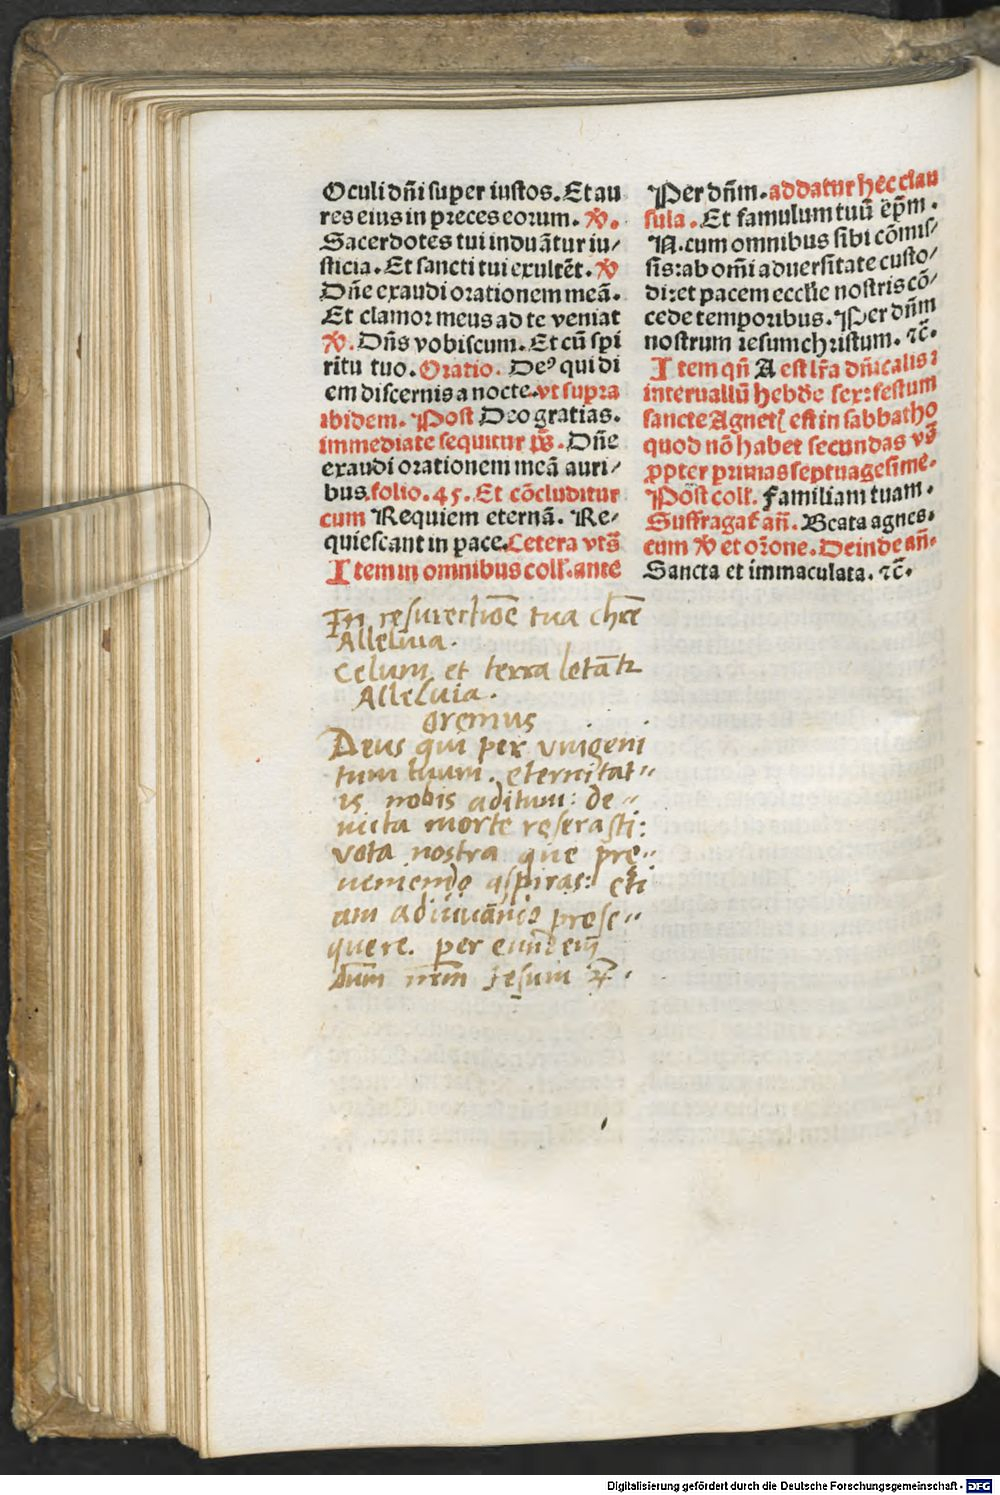 Oculi dñi super iustos. Et au
res eius in preces eorum. ꝟ.
Sacerdotes tui induãtur iu⸗
sticia. Et sancti tui exultẽt. ꝟ
Dñe exaudi orationem meã.
Et clamor meus ad te veniat
ꝟ. Dñs vobiscum. Et cũ spi
ritu tuo. Oratio. Deꝰ qui di
em discernis a nocte. vt supra
ibidem. Post Deo gratias.
immediate sequitur p̃s. Dñe
exaudi orationem meã auri⸗
bus. folio. 45. Et cõcluditur
cum Requiem eternã. Re⸗
quiescant in pace. Cetera vts̃
Item in omnibus coll. ante
Per dñm. addatur hec clau
sula. Et famulum tuũ ep̃m.
N. cum omnibus sibi cõmis⸗
sis: ab om̃i aduersitate custo⸗
di: et pacem eccl̃ie nostris cõ⸗
cede temporibus. Per dñm
nostrum iesum christum. ⁊c̃.
Item qñ A est lr̃a dñicalis:
interuallũ hebde sex: festum
sancte Agnetꝭ est in sabbatho
quod nõ habet secundas vs̃
ꝓpter primas septuagesime.
Post coll. Familiam tuam.
Suffragat̃ añ. Beata agnes.
cum ꝟ et or̃one. Deinde añ.
Sancta et immaculata. ⁊c̃.
In resurectiõe tua chr̃e
Alleluia.
Celum et terra letãtꝛ
Alleluia.
Oremus
Deus qui per vnigeni
tum tuum. eternitat⸗
is nobis aditum: de⸗
uicta morte reserasti:
vota nostra que pre⸗
ueniendo aspiras: eti
am adiuuãdo prose⸗
quere. per eundem
dñm nr̃m Jesum ⁊c.
Digitalisierung gefördert durch die Deutsche Forschungsgemeinschaft - DFG